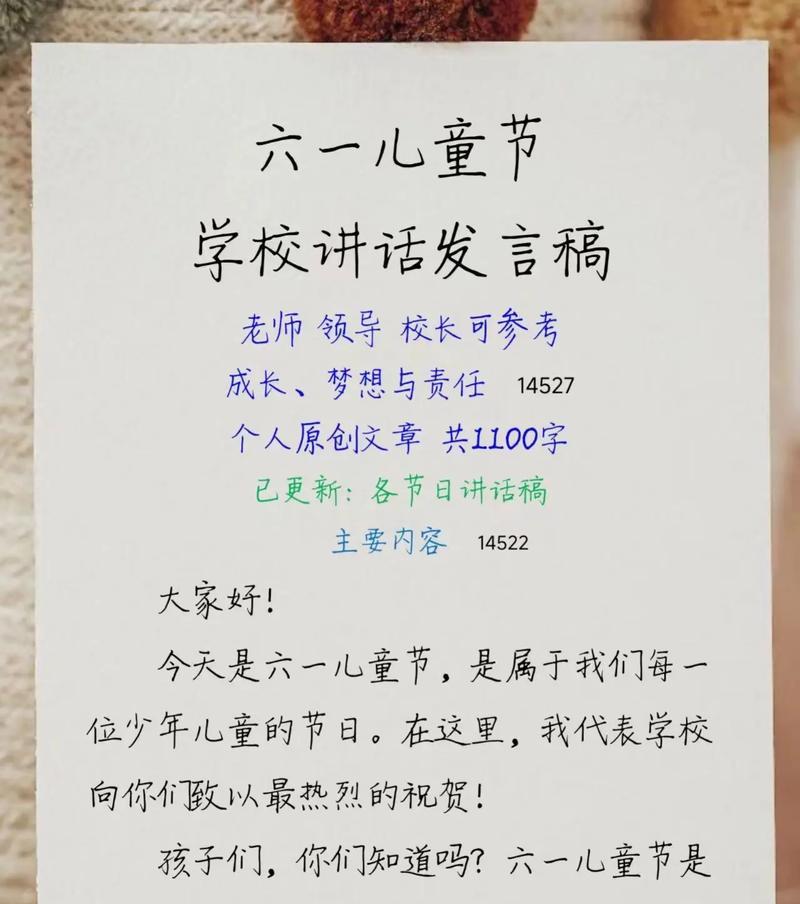 六一儿童节
学校讲话发言稿
老师 领导 校长可参考
成长、梦想与责任 14527
个人原创文章 共1100字
已更新：各节日讲话稿
主要内容 14522
大家好！
今天是六一儿童节，是属于我们每一
位少年儿童的节日。在这里，我代表学校
向你们致以最热烈的祝贺！
孩子们，你们知道吗？六一儿童节是